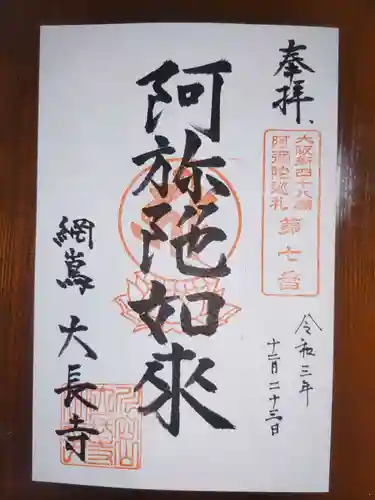 奉拝
大阪新四十八願
阿弥陀巡礼
第七番
令和三年
十二月二十三日
阿弥陀如来
網嶌 大長寺